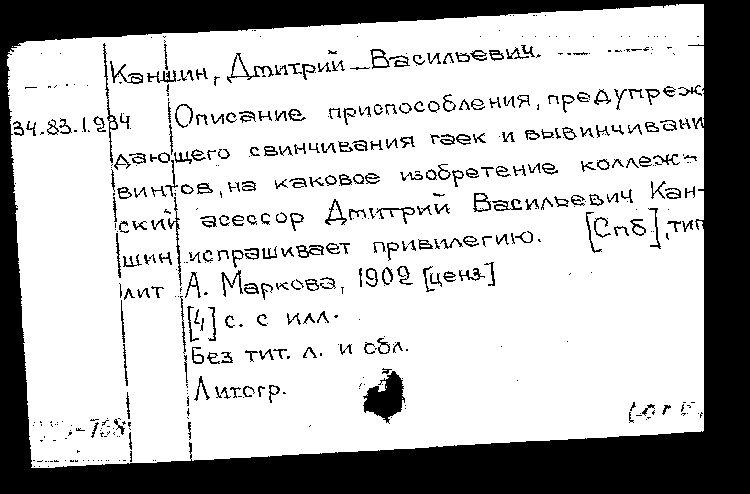 Каншин, Дмитрий Васильевич.
34.83.1.934 Описание приспособления, предупреж-
дающего свинчивания гаек и вывинчивани
винтов, на каковое изобретение коллеж-
ский асессор Дмитрий Васильевич Кан-
шин испрашивает привилегию. [Спб], тип
лит А. Маркова, 1902 [ценз]
[4] с. с илл.
Без тит. л. и обл.
Литогр.
-768